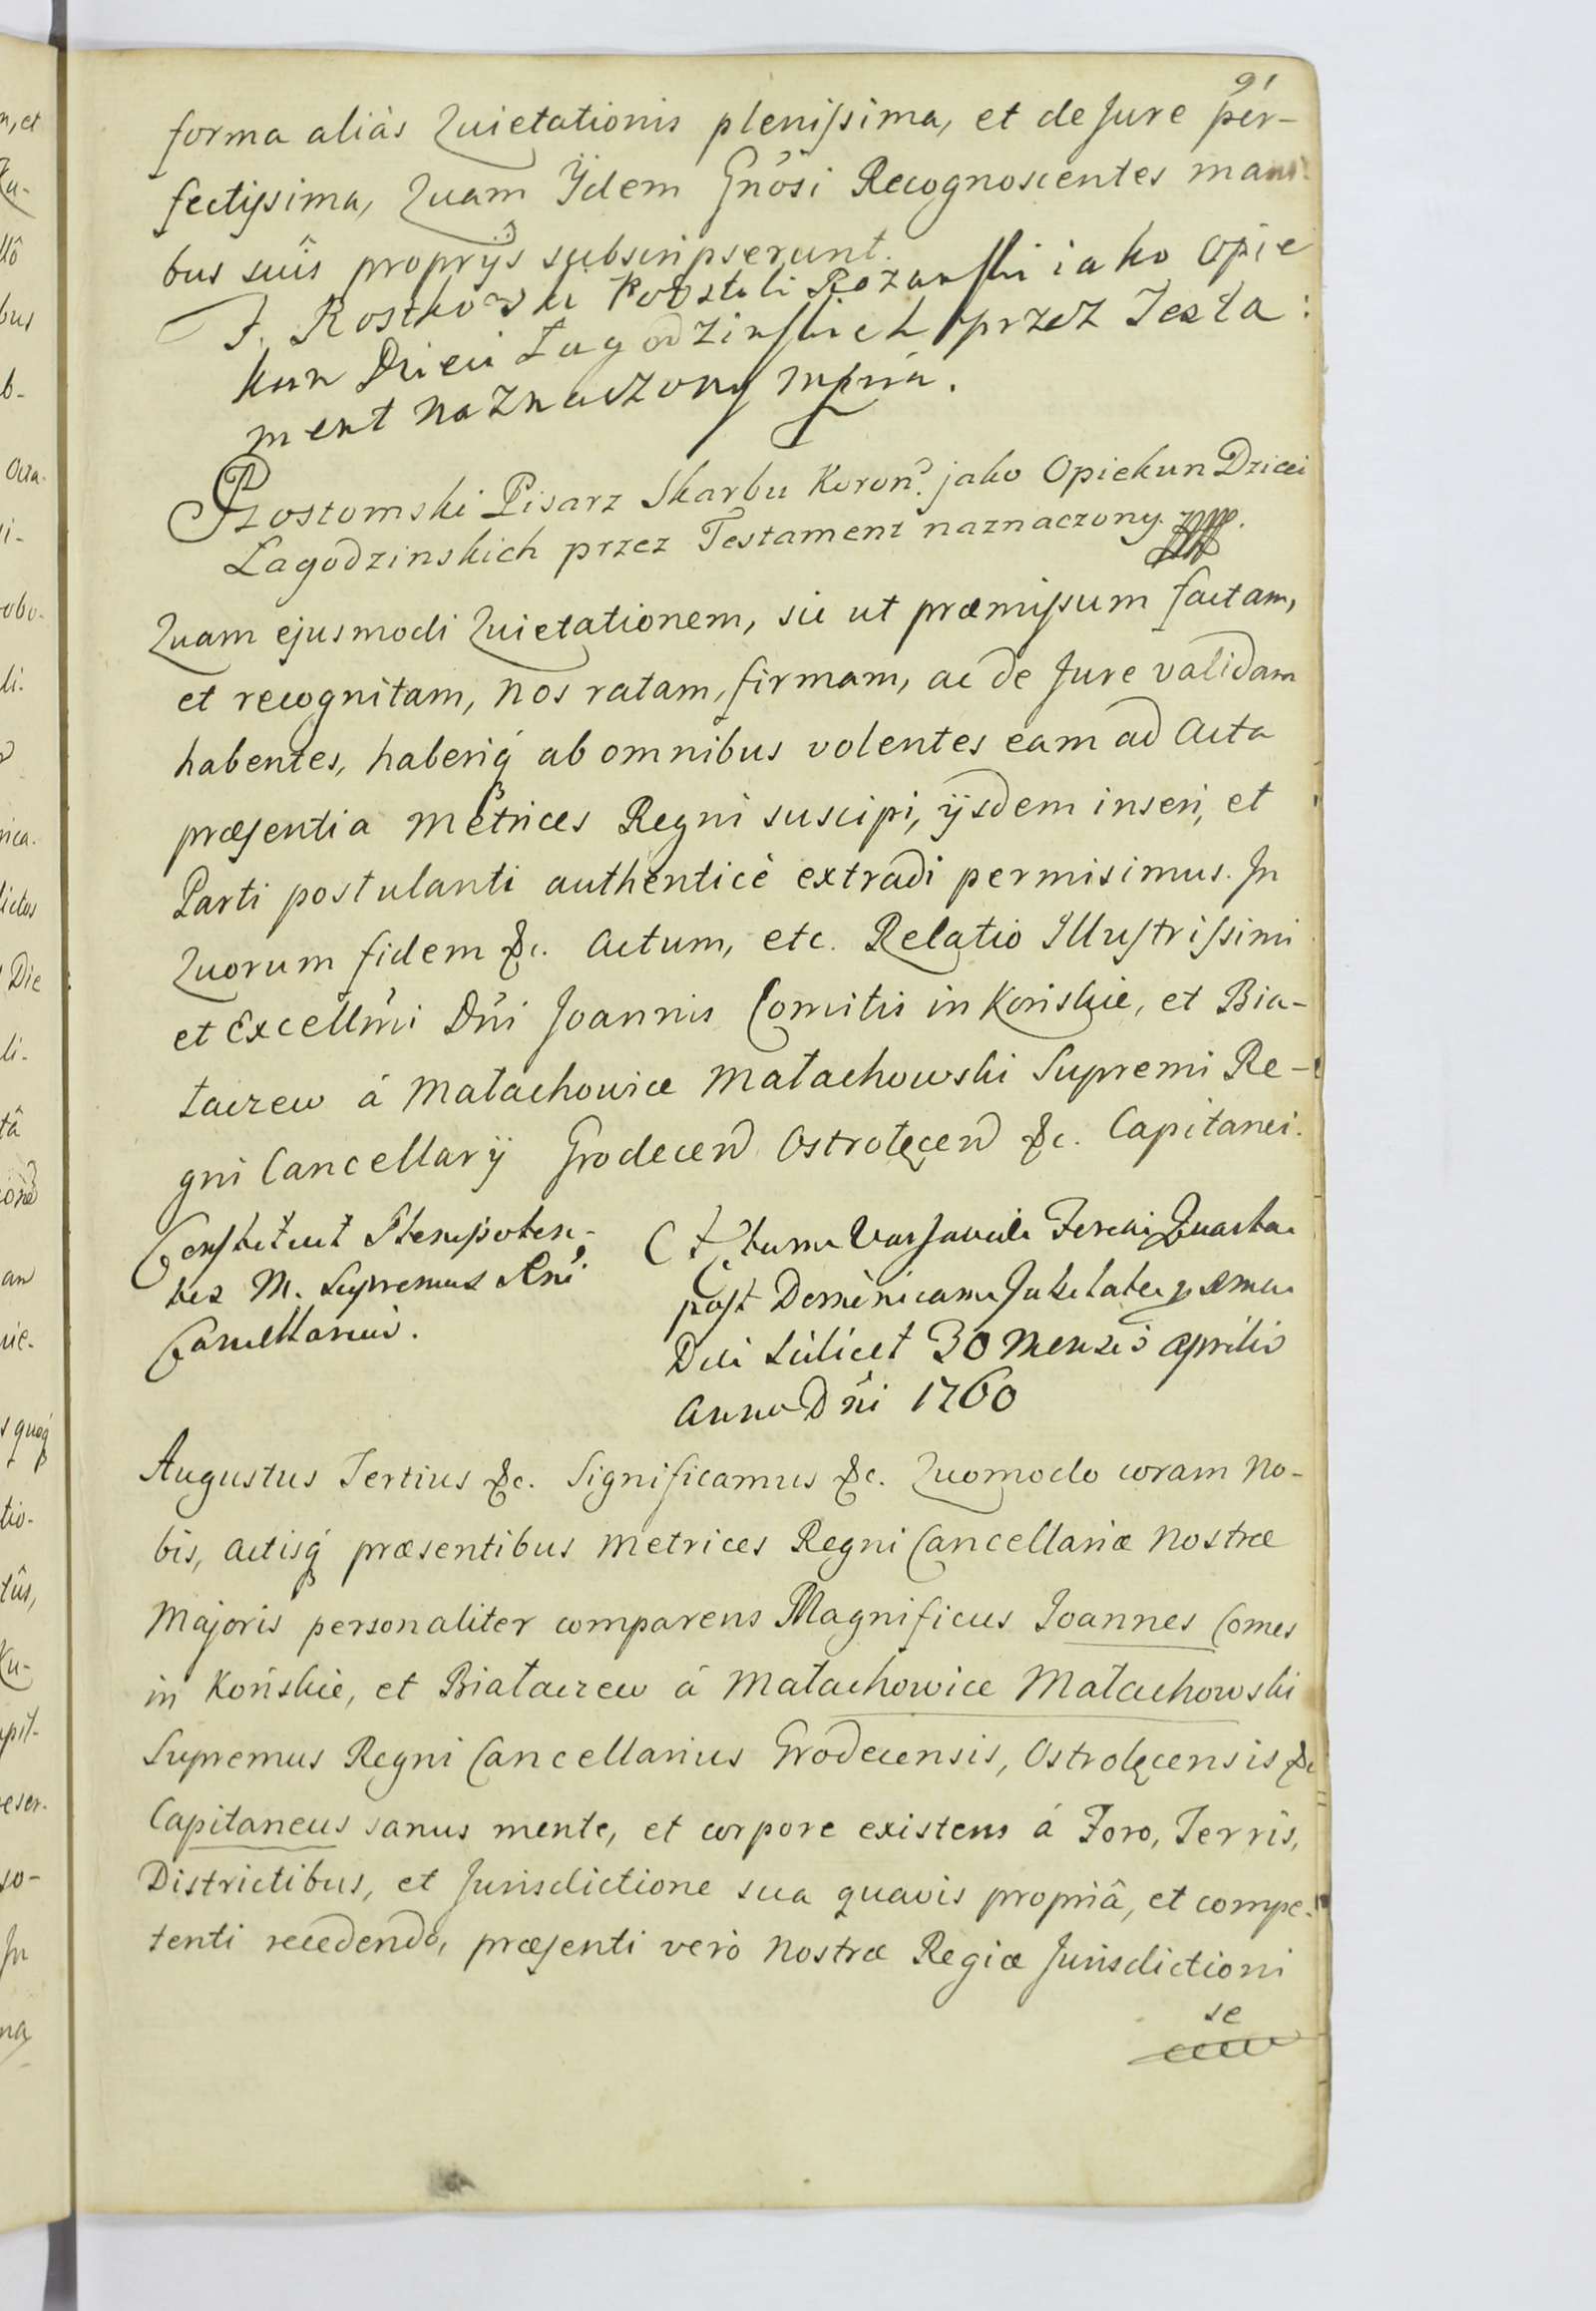 91
forma aliàs Quietationis plenissima, et de Jure per-
fectissima, Quam Ijdem Gnosi Recognoscentes mani-
bus suis proprijs subscripserunt.
J. Rostkowski Podstoli Rozanski iako Opie
kun Dzieci Łagodzinskich przez Testa:
ment naznaczony mpria.
Rostomski Pisarz Skarbu Koron. jako Opiekun Dzieci
Łagodzinskich przez Testament naznaczony. mpp.
Quam ejusmodi Quietationem, sic ut præmissum factam,
et recognitam, nos ratam, firmam, ac de Jure validam
habentes, haberiq́ ab omnibus volentes eam ad Acta
præsentia Metrices Regni suscipi, ijsdem inseri, et
Parti postulanti authenticè extradi permisimus. In
Quorum fidem &c. Actum, etc. Relatio Illustrissimi
et Excellmi Dni Joannis Comitis in Końskie, et Bia-
łaczew á Małachowice Małachowski Supremi Re-
gni Cancellarij Grodecen Ostrołęcen &c. Capitanei.
Constituit Plenipoten-
tes M. Supremus Rni
Cancellarius.
Actum Varsaviæ Feria Quarta
post Dominicam Jubilate proxima
Die scilicet 30 Mensis Aprilis
Anno Dni 1760
Augustus Tertius &c. Significamus &c. Quomodo coram No-
bis, Actisq́ præsentibus Metrices Regni Cancellariæ Nostræ
Majoris personaliter comparens Magnificus Joannes Comes
in Końskie, et Białaczew á Małachowice Małachowski
Supremus Regni Cancellarius Grodecensis, Ostrolęcensis &c
Capitaneus sanus mente, et corpore existens á Foro, Terris,
Districtibus, et Jurisdictione sua quavis propriâ, et compe-
tenti recedendo, præsenti verò Nostræ Regiæ Jurisdictioni
se